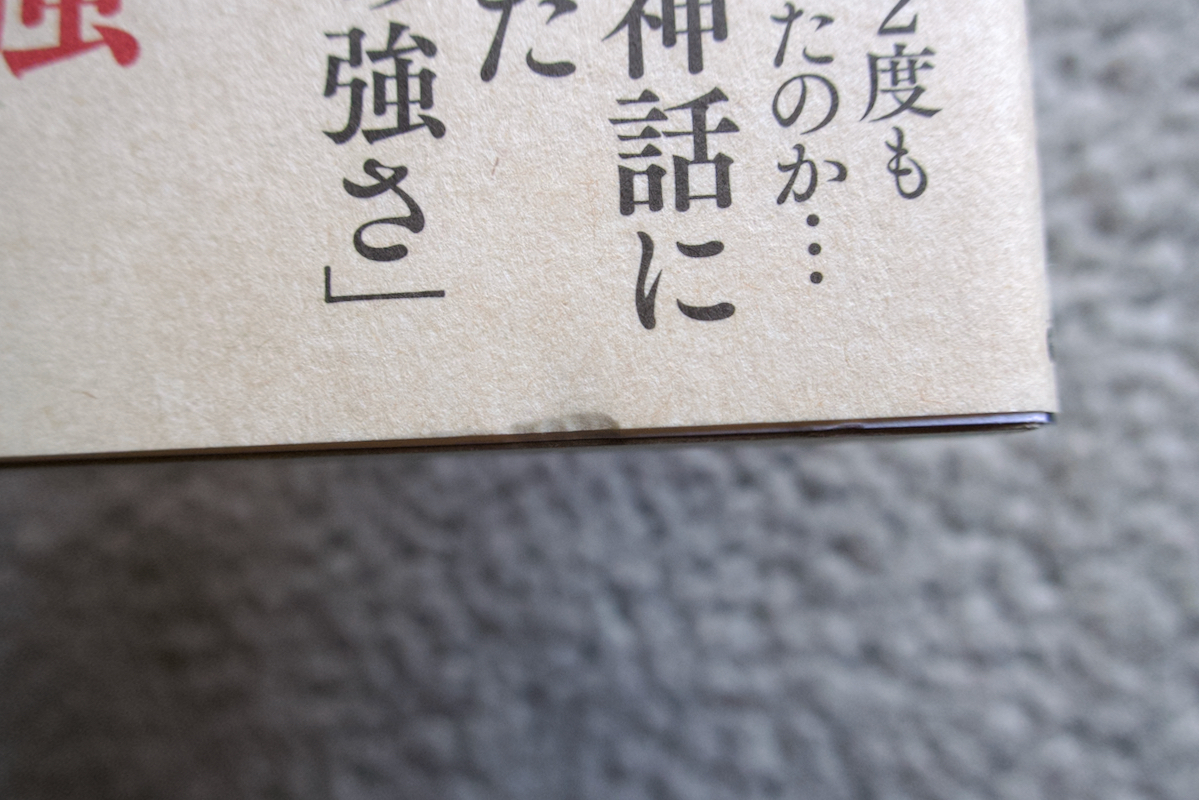 2度も
たのか…
神話に
た
強さ」
強